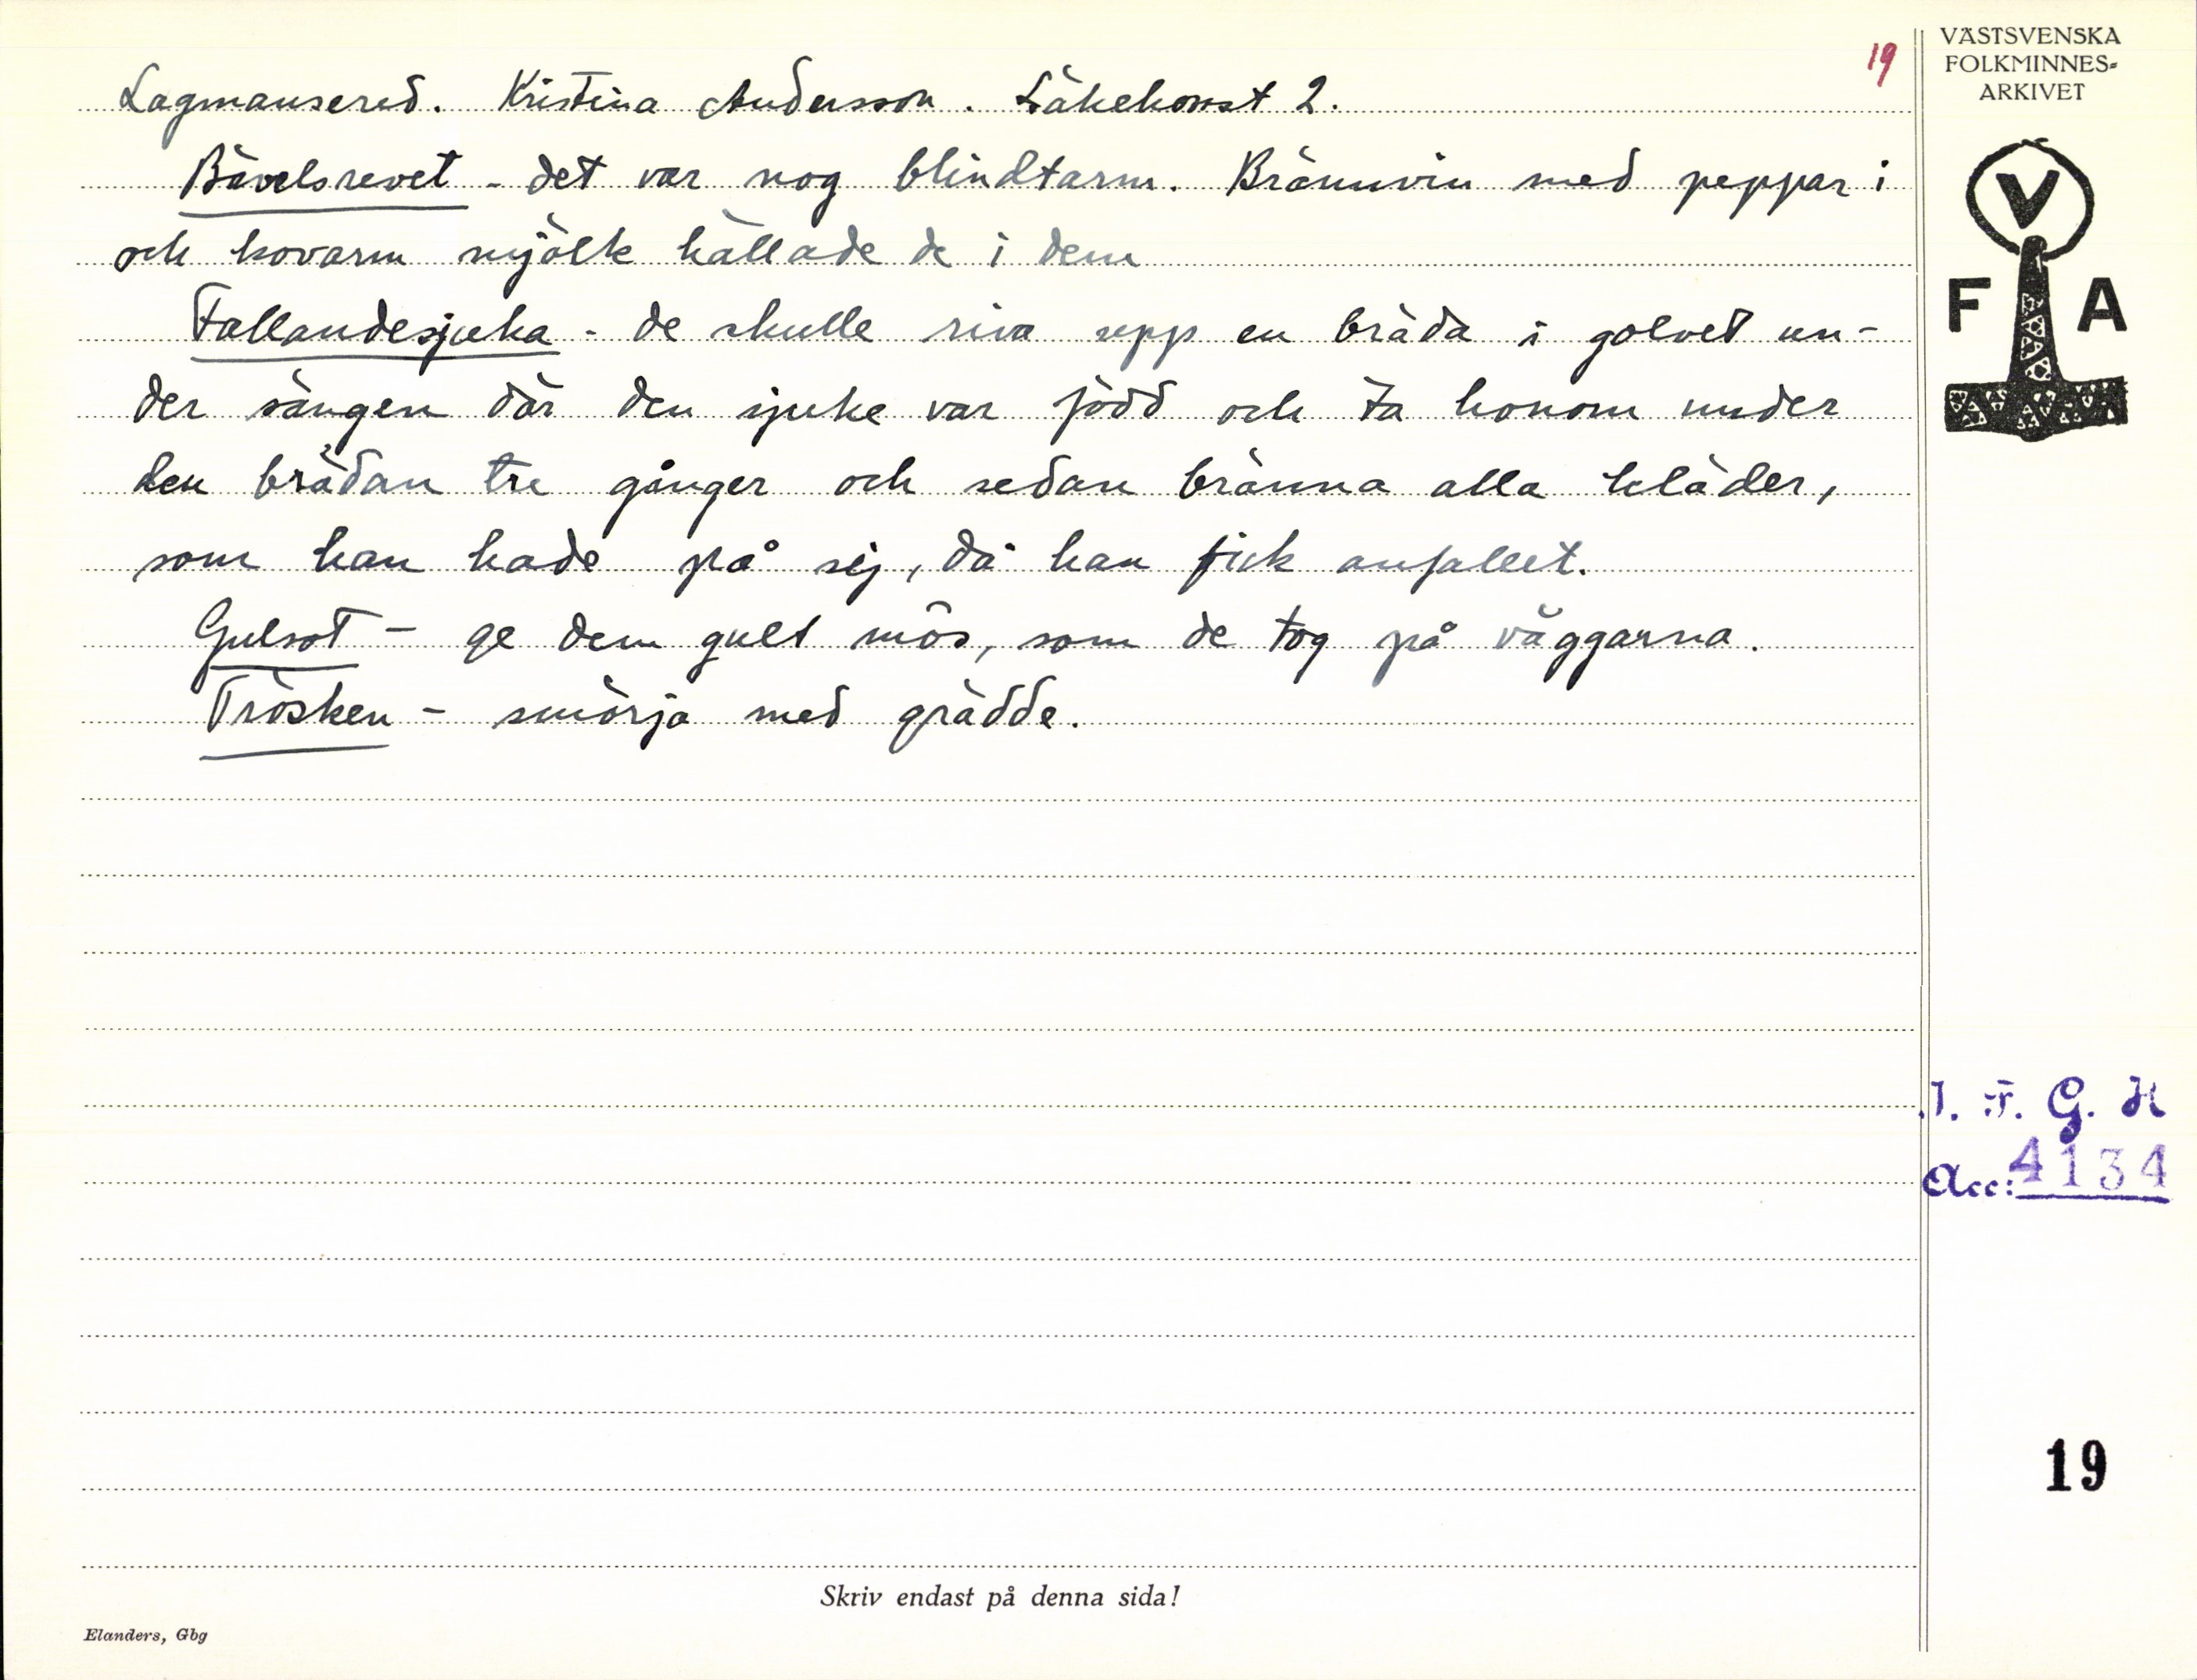 19
VÄSTSVENSKA
FOLKMINNES-
ARKIVET
Lagmansered. Kristina Andersson. Läkekonst 2.
Bävelsrevet - det var nog blindtarm. Brännvin med peppar i
och kovarm mjölk hällade de i dem
Fallandesjuka - de skulle riva upp en bräda i golvet un-
der sängen där den sjuke var född och ta honom under
den brädan tre gånger och sedan bränna alla kläder,
som han hade på sej, då han fick anfallet.
Gulsot - ge dem gult mös, som de tog på väggarna.
Trösken - smörja med grädde.
V
F A
I. F. G. H
Acc: 4134
19
Skriv endast på denna sida!
Elanders, Gbg